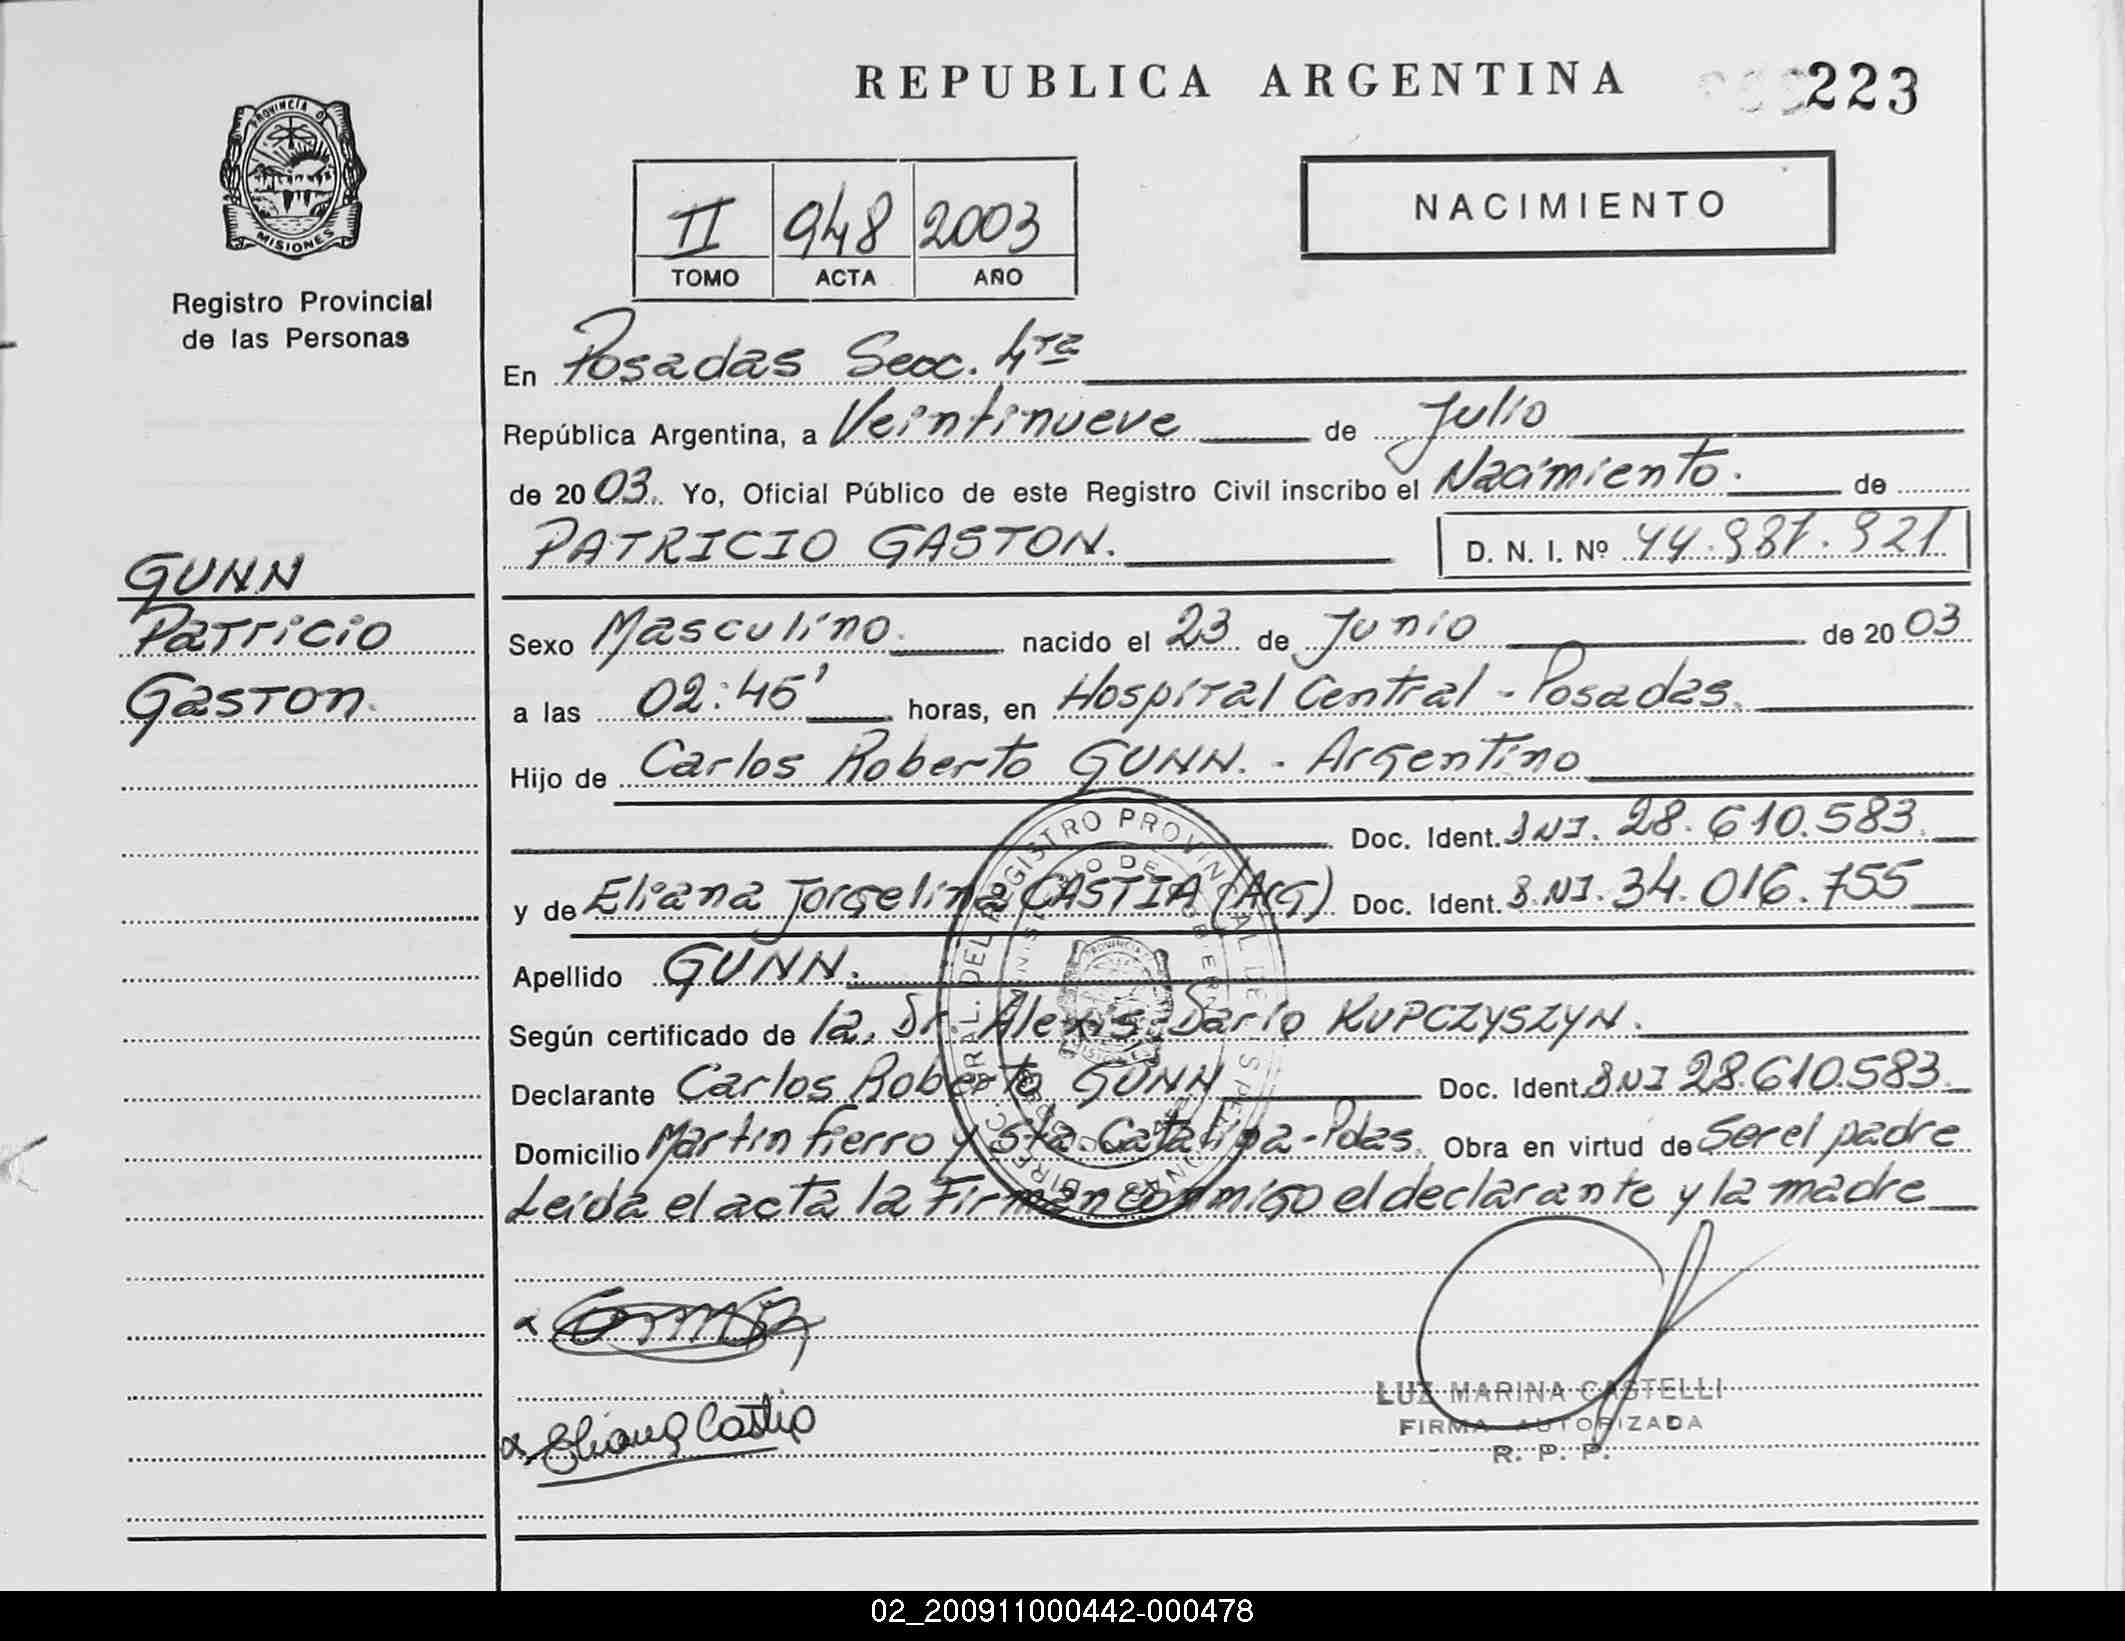 REPUBLICA ARGENTINA
223
PROVINCIA DE
MISIONES
Registro Provincial
de las Personas
II 948 2003
TOMO ACTA AÑO
NACIMIENTO
En Posadas Secc. 4ta
República Argentina, a Veintinueve de Julio
de 2003. Yo, Oficial Público de este Registro Civil inscribo el Nacimiento. de
PATRICIO GASTON. D. N. I. Nº 44.981.921
GUNN
Patricio
Gaston.
Sexo Masculino. nacido el 23 de Junio de 2003
a las 02:45' horas, en Hospital Central - Posadas.
Hijo de Carlos Roberto GUNN. - Argentino
Doc. Ident. DNI. 28.610.583.
y de Eliana Jorgelina CASTIA (Arg) Doc. Ident. D.NI. 34.016.755
Apellido GUNN.
Según certificado de la, Dr. Alexis Dario KUPCZYSZYN.
Declarante Carlos Roberto GUNN Doc. Ident. DNI 28.610.583.
Domicilio Martin fierro y sta. Catalina-Pdas. Obra en virtud de Ser el padre
Leida el acta la Firman conmigo el declarante y la madre
Eliana Castia
LUZ MARINA CASTELLI
FIRMA AUTORIZADA
R. P. P.
02_200911000442-000478